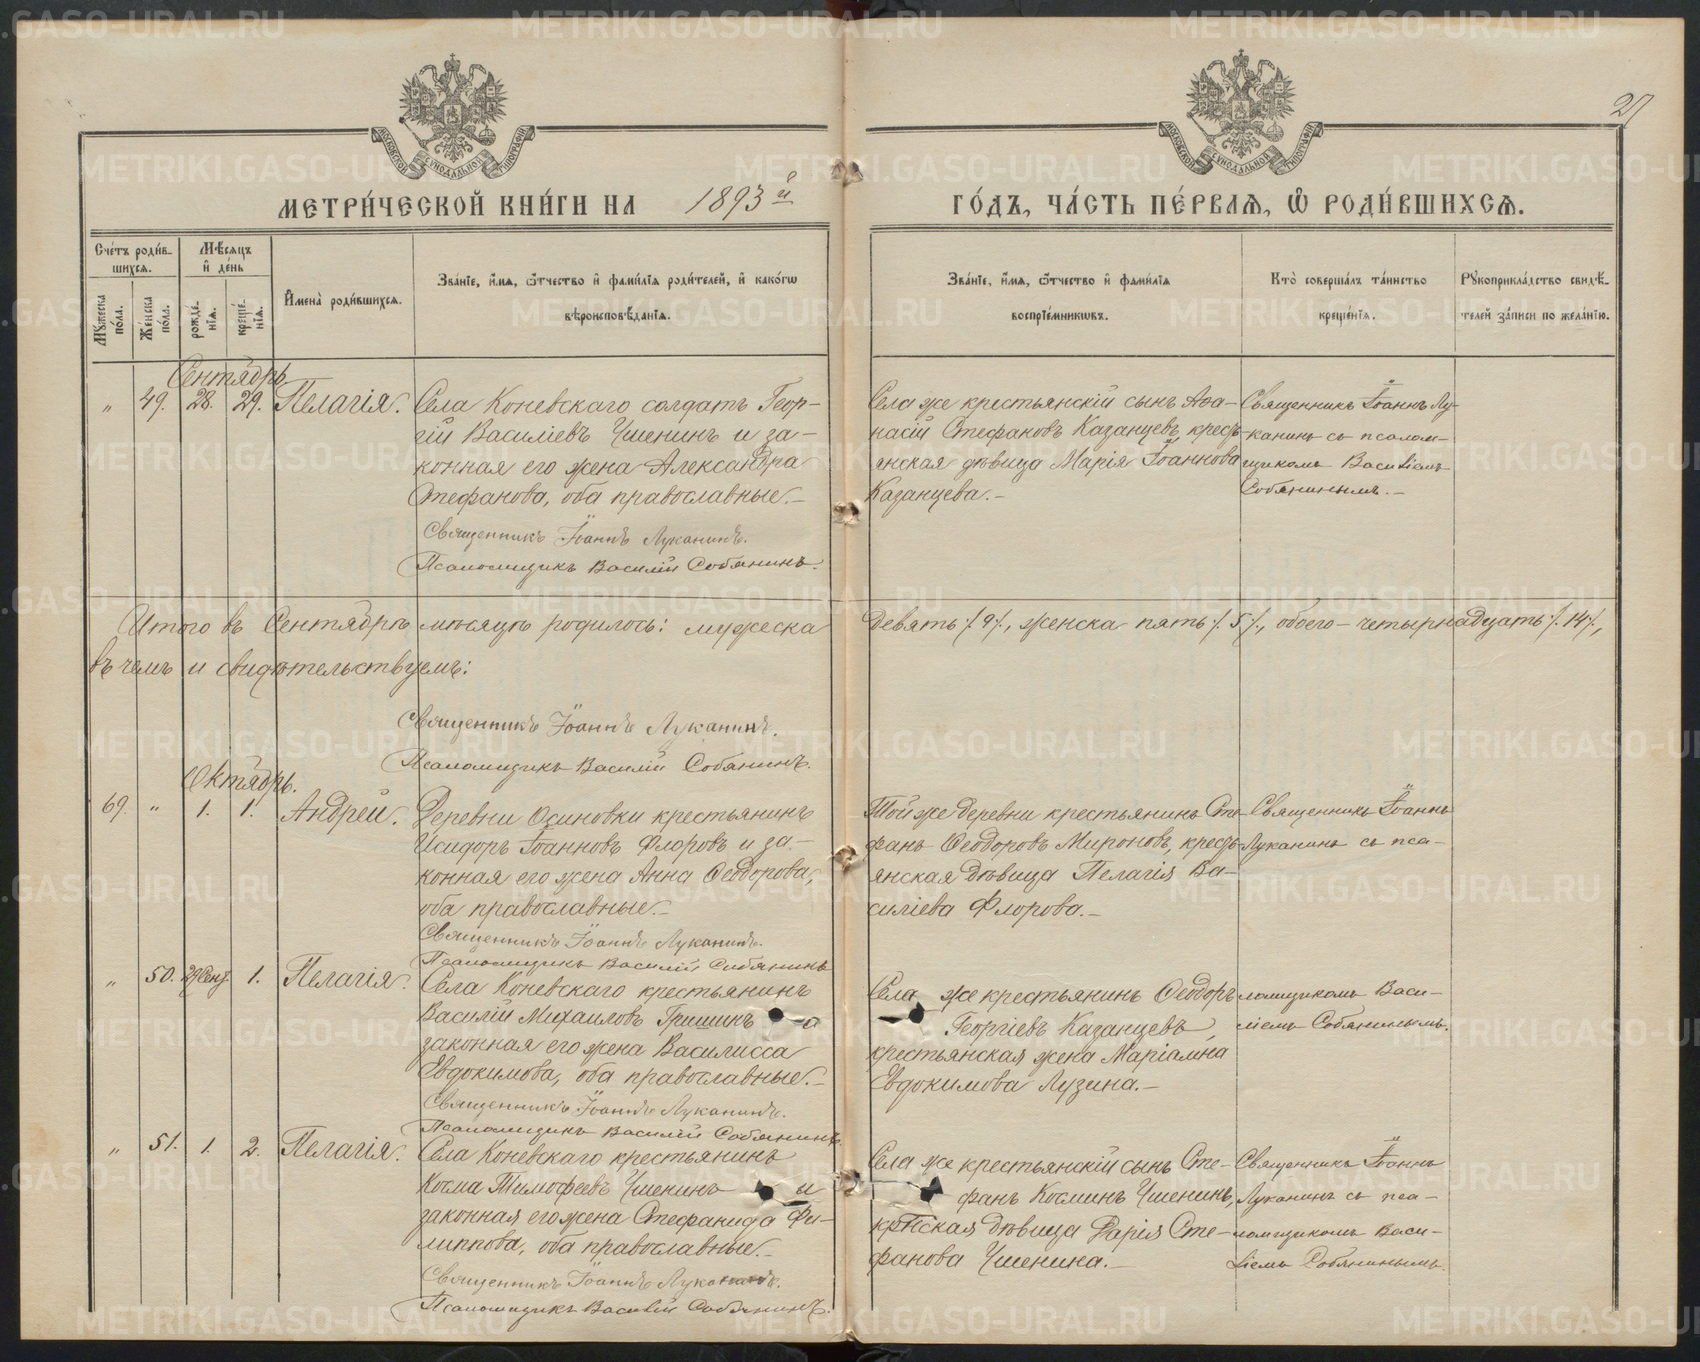 27
МЕТРИ́ЧЕСКОЙ КНИ́ГИ НА 1893й
ГО́ДЪ, ЧА́СТЬ ПЕ́РВАЯ, Ѡ РОДИ́ВШИХСЯ.
Сче́тъ роди́в-
шихся.
Мѣ́сяцъ
и҆ де́нь
Мꙋжеска по́ла.
Же́нска по́ла.
рожде́-
нїѧ.
креще́-
нїѧ.
И҆мена̀ роди́вшихсѧ.
Зва́нїе, и҆́мѧ, ѻ҆́тчество и҆ фами́лїѧ роди́телей, и҆ како́гѡ
вѣроисповѣ́данїѧ.
Зва́нїе, и҆́мѧ, ѻ҆́тчество и҆ фами́лїѧ
воспрїе́мникѡвъ.
Кто̀ соверша́лъ та́инство
креще́нїѧ.
Рꙋкоприкла́дство свидѣ́-
телей за́писи по жела́нїю.
Сентябрь
„ 49. 28. 29. Пелагія. Села Коневскаго солдатъ Геор-
гій Василіевъ Чшенинъ и за-
конная его жена Александра
Стефанова, оба православные.-
Священникъ Іоаннъ Луканинъ.
Псаломщикъ Василій Собянинъ.
Села же крестьянскій сынъ Аѳа-
насій Стефановъ Казанцевъ, крест-
янская дѣвица Марія Іоаннова
Казанцева.-
Священникъ Іоаннъ Лу-
канинъ съ псалом-
щикомъ Василіемъ
Собянинымъ.-
Итого въ Сентябрѣ мѣсяцѣ родилось: мужеска девять /.9/., женска пять /.5/., обоего - четырнадцать /.14/.,
въ чемъ и свидѣтельствуемъ:
Священникъ Іоаннъ Луканинъ.
Псаломщикъ Василій Собянинъ.
Октябрь.
69. „ 1. 1. Андрей. Деревни Осиновки крестьянинъ
Исидоръ Іоанновъ Флоровъ и за-
конная его жена Анна Ѳеодорова,
оба православные.-
Священникъ Іоаннъ Луканинъ.
Псаломщикъ Василій Собянинъ
Той же деревни крестьянинъ Сте-
фанъ Ѳеодоровъ Мироновъ, крест-
янская дѣвица Пелагія Ва-
силіева Флорова.-
Священникъ Іоаннъ
Луканинъ съ пса-
„ 50. 29 Сент. 1. Пелагія. Села Коневскаго крестьянинъ
Василій Михаиловъ Гришинъ и
законная его жена Василисса
Евдокимова, оба православные.-
Священникъ Іоаннъ Луканинъ.
Псаломщикъ Василій Собянинъ.
Села же крестьянинъ Ѳеодоръ
Георгіевъ Казанцевъ
крестьянская жена Маріамна
Евдокимова Лузина.-
ломщикомъ Васи-
ліемъ Собянинымъ.
„ 51. 1. 2. Пелагія. Села Коневскаго крестьянинъ
Косма Тимофеевъ Чшенинъ и
законная его жена Стефанида Фи-
липпова, оба православные.-
Священникъ Іоаннъ Луканинъ.
Псаломщикъ Василій Собянинъ.
Села же крестьянскій сынъ Сте-
фанъ Косминъ Чшенинъ,
крестьянская дѣвица Дарія Сте-
фанова Чшенина.-
Священникъ Іоаннъ
Луканинъ съ пса-
ломщикомъ Васи-
ліемъ Собянинымъ.